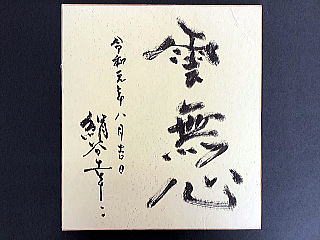 雲無心
令和元年八月吉日
絹谷幸二